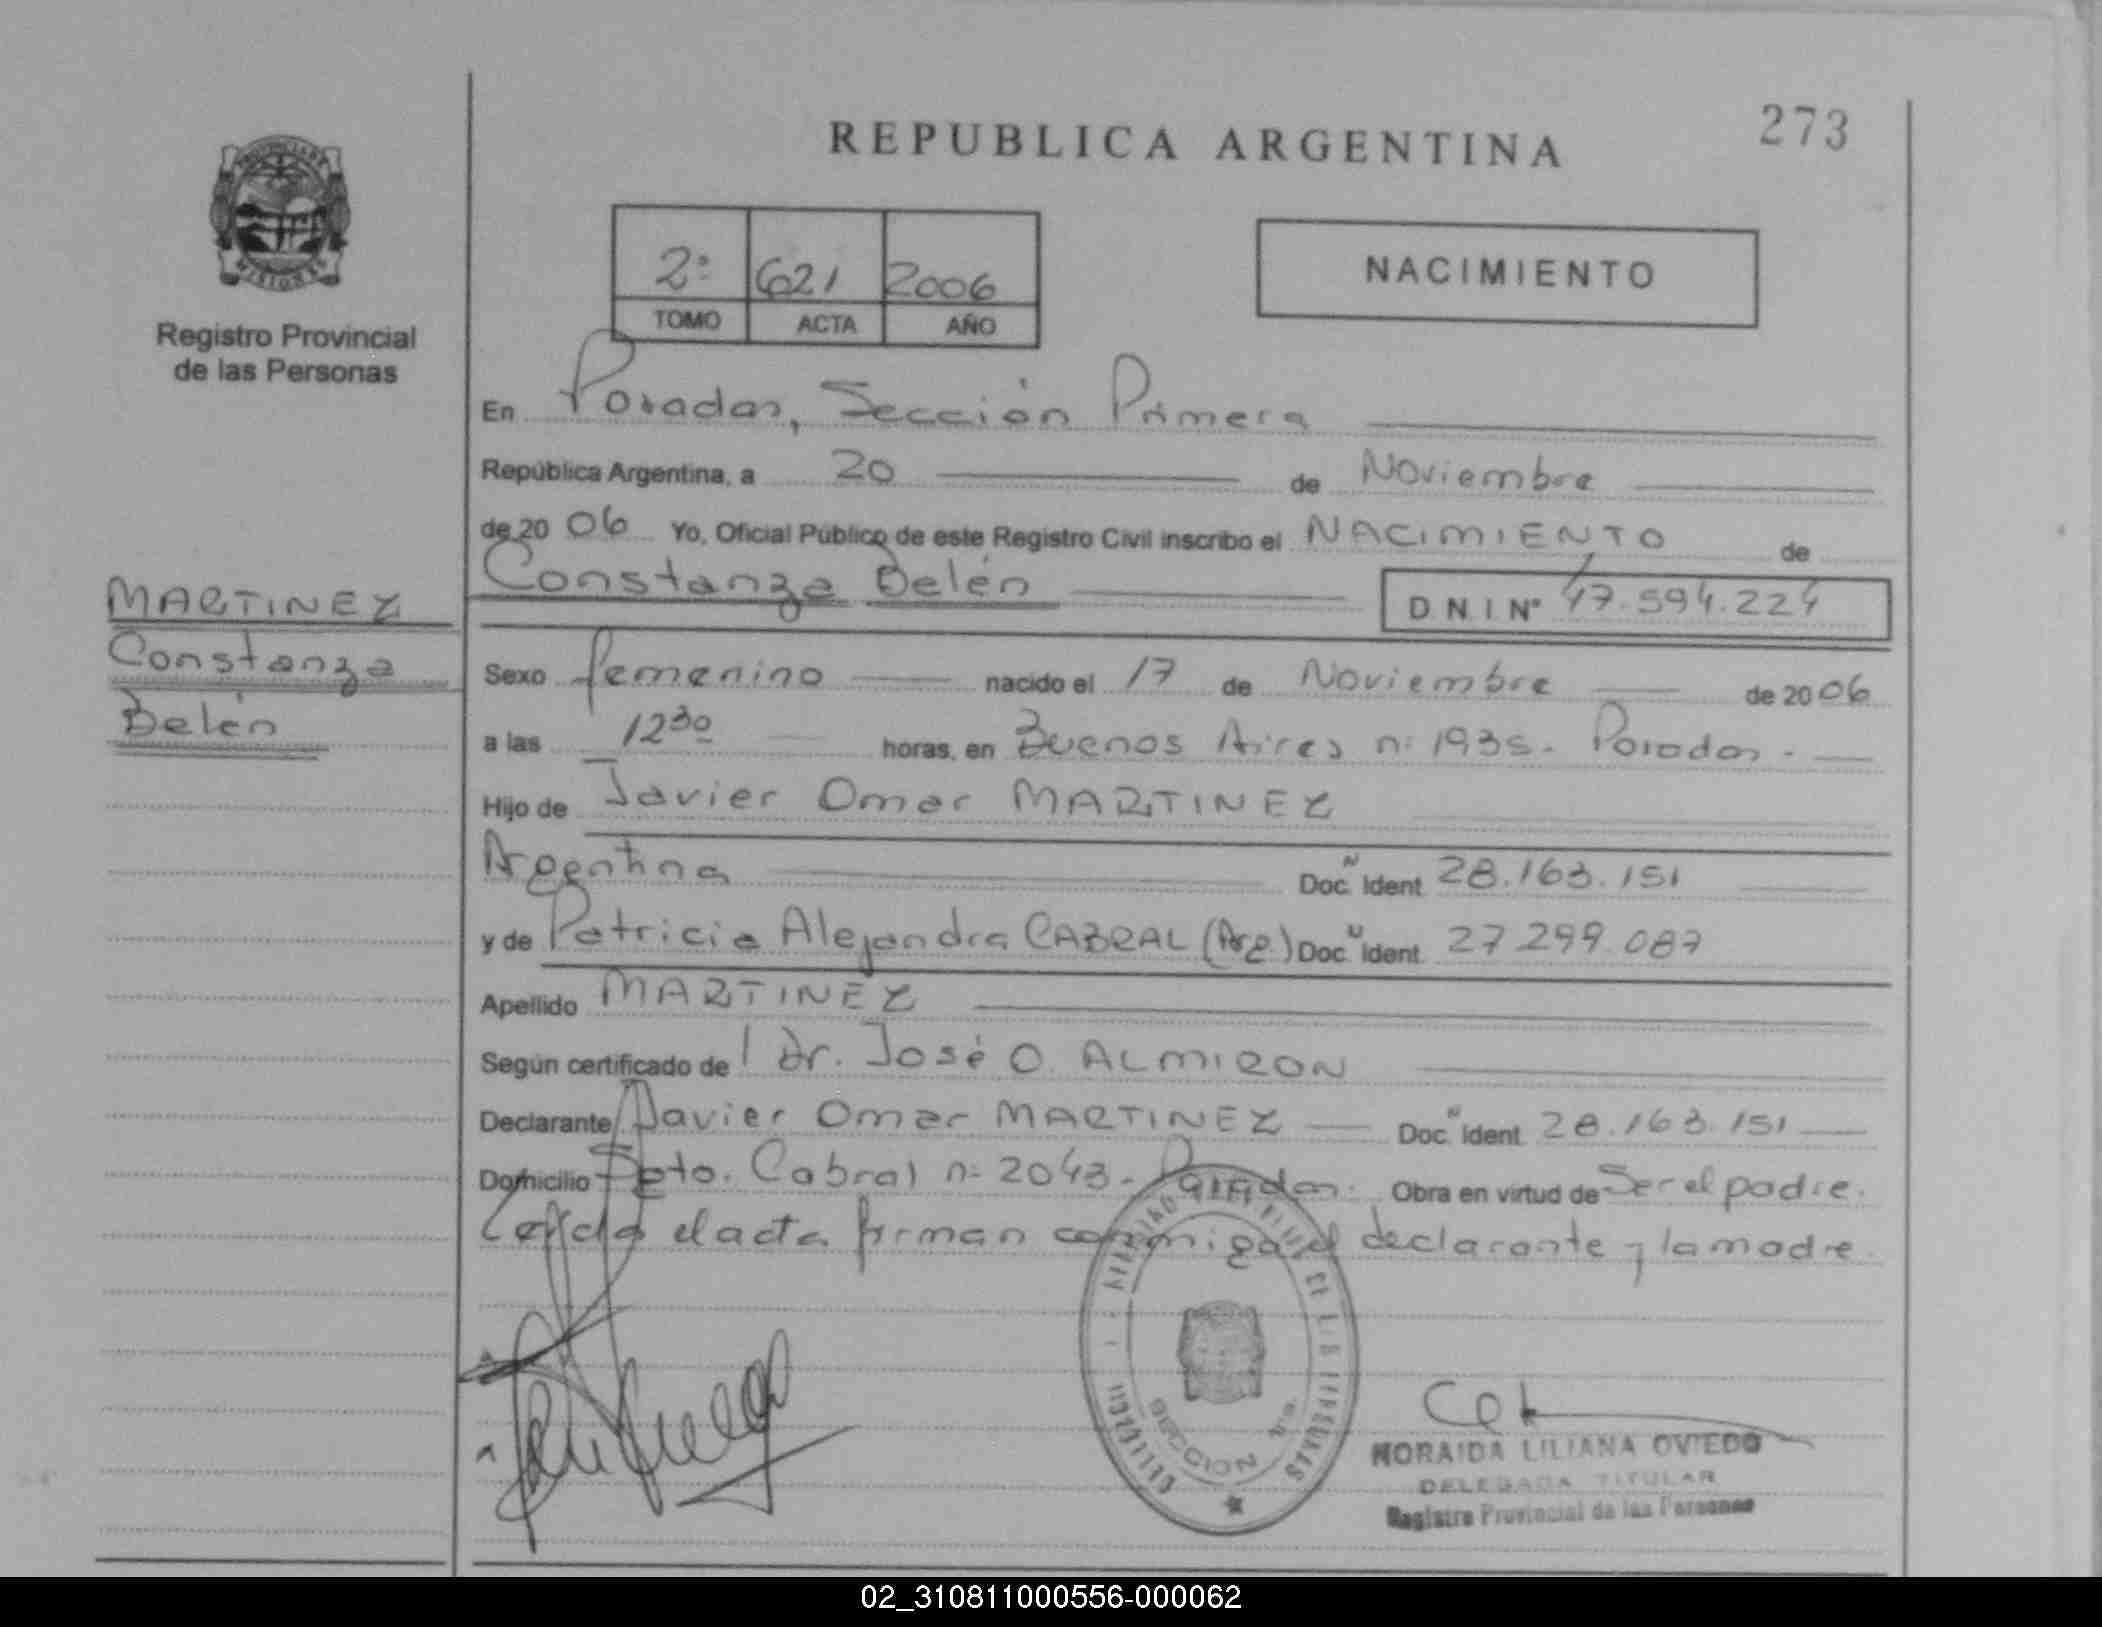 273
REPUBLICA ARGENTINA
Registro Provincial
de las Personas
2º 621 2006
TOMO ACTA AÑO
NACIMIENTO
En Posadas, Sección Primera
República Argentina, a 20 de Noviembre
de 20 06 Yo, Oficial Público de este Registro Civil inscribo el NACIMIENTO de
Constanza Belén D.N.I. Nº 47.594.224
MARTINEZ
Constanza
Belén
Sexo femenino nacido el 17 de Noviembre de 20 06
a las 12 30 horas, en Buenos Aires nº 1935. Posadas.
Hijo de Javier Omar MARTINEZ
Argentina Doc. Ident 28.163.151
y de Patricia Alejandra CABRAL (Arg) Doc. Ident. 27.299.087
Apellido MARTINEZ
Según certificado de Dr. José O. ALMIRON
Declarante Javier Omar MARTINEZ Doc. Ident 28.163.151
Domicilio Sgto. Cabral nº 2043. Posadas. Obra en virtud de Ser el padre.
Leída el acta firman conmigo el declarante y la madre.
SECCION 1ra.
NORAIDA LILIANA OVIEDO
DELEGADA TITULAR
Registro Provincial de las Personas
02_310811000556-000062